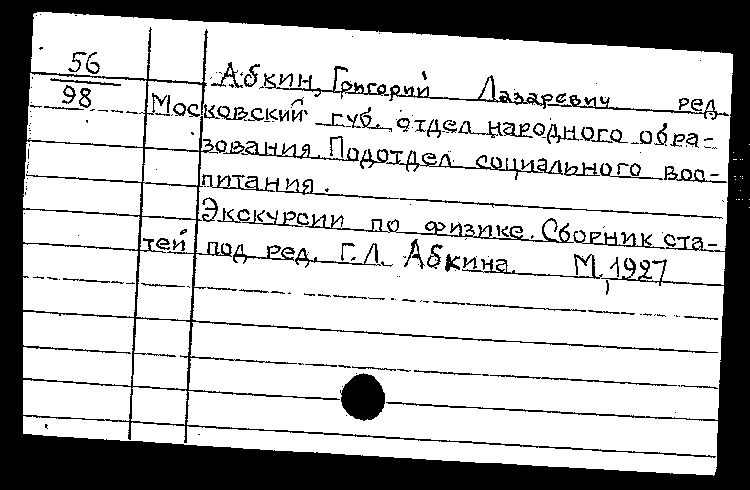 56
98
Абкин, Григорий Лазаревич ред.
Московский губ. отдел народного обра-
зования. Подотдел социального вос-
питания.
Экскурсии по физике. Сборник ста-
тей под ред. Г.Л. Абкина. М, 1927